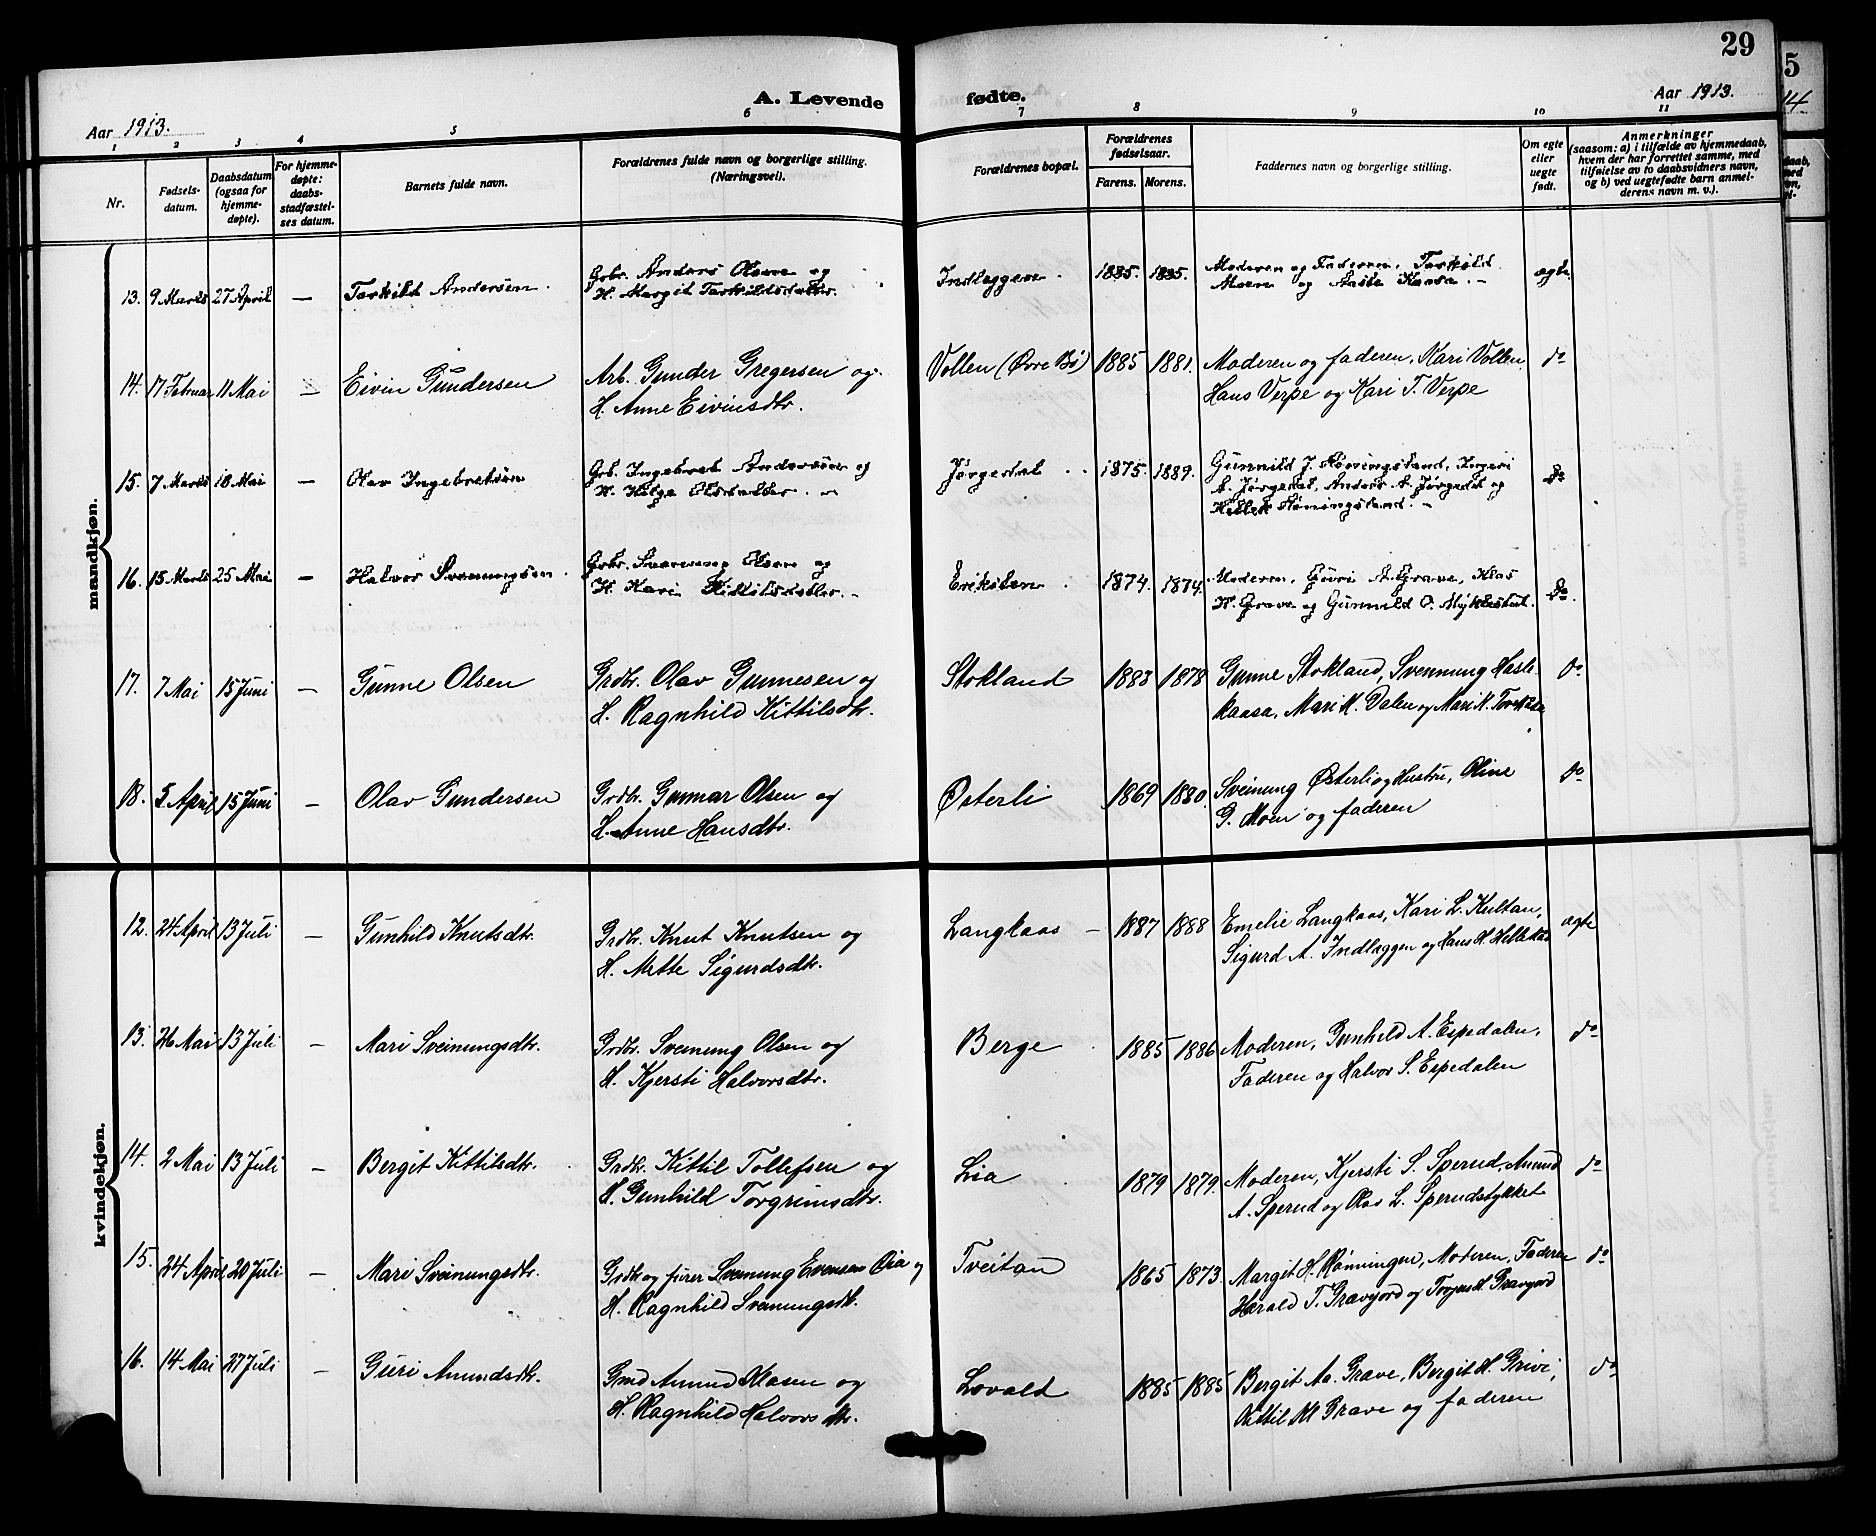 29
A. Levende fødte.
Aar 1913.
Aar 1913.
1 2 3 4 5 6 7 8 9 10 11
Nr.
Fødsels-
datum.
Daabsdatum
(ogsaa for
hjemme-
døpte).
For hjemme-
døpte:
daabs-
stadfæstel-
ses datum.
Barnets fulde navn.
Forældrenes fulde navn og borgerlige stilling.
(Næringsvei).
Forældrenes bopæl.
Forældrenes
fødselsaar.
Farens. Morens.
Faddernes navn og borgerlige stilling.
Om egte
eller
uegte
født.
Anmerkninger
(saasom: a) i tilfælde av hjemmedaab,
hvem der har forrettet samme, med
tilføielse av to daabsvidners navn,
og b) ved uegtefødte barn anmel-
derens navn m. v.).
mandkjøn.
13. 9 Marts 27 April — Tarkild Andersen. Gbr. Anders Olsen og Indlæggen. 1885. 1885. Moderen og Faderen, Tarkild ægte.
H. Margit Tarkildsdatter. Moen og Aasle Kaasa. —
14. 17 Februar 11 Mai — Eivin Gundersen Arb. Gunder Gregersen og Vollen (Øvre Bø) 1885 1881. Moderen og faderen, Kari Vollen, do
H. Anne Eivinsdtr. Hans Verpe og Kari T. Verpe
15. 7 Marts 18 Mai — Olav Ingebretsen Gbr. Ingebret Andersen og Jørgedal 1875. 1889. Gunnild J. Hønningsland, Ingeri do
H. Helge Olsdatter. — A. Jørgedal, Anders A. Jørgedal og
Hønningsland. —
16. 15 Marts 25 Mai — Halvor Svenungsen. Gbr. Svenung Olsen og Eriksten 1874. 1874. Moderen, Guri A. Grave, Klas do.
H. Kari Kittilsdatter. — H. Grave og Gunnild O. Myklestul.
17. 7 Mai 15 Juni — Gunne Olsen Grdbr. Olav Gunnesen og Stokland 1883 1878 Gunne Stokland, Svennung Hasle do
H. Ragnhild Kittilsdtr. kaasa, Mari K. Dalen og Mari K.
18. 5 April 15 Juni — Olav Gundersen Grdbr. Gunnar Olsen og Østerli 1869 1880. Sveinung Østerli og Hustru, Oline do
H. Anne Hansdtr. G. Moen og faderen
kvindekjøn.
12. 24 April 13 Juli — Gunhild Knutsdtr. Grdbr. Knut Knutsen og Langkaas — 1887 1888 Emelie Langkaas, Kari L. Kultan, ægte
H. Mette Sigurdsdtr. Sigurd A. Indlæggen og Hans H.
13. 26 Mai 13 Juli — Mari Sveinungsdtr. Grdbr. Sveinung Olsen og Berge 1885 1886 Moderen, Gunhild A. Espedalen, do
H. Kjersti Halvorsdtr. Faderen og Halvor S. Espedalen
14. 2 Mai 13 Juli — Bergit Kittilsdtr. Grdbr. Kittil Tollefsen og Lia 1879 1879. Moderen, Kjersti S. Sperud, Anund do
H. Gunhild Torgrimsdtr. A. Sperud og Olav L. Sperudstykket
15. 24 April 20 Juli — Mari Sveinungsdtr. Grdbr. og furer Svenung Evensen Lia og Tveitan 1865 1873. Margit H. Rønningen, Moderen, Faderen do
H. Ragnhild Sveinungsdt. Harald T. Gravjord og H. Gravjord
16. 14 Mai 27 Juli — Guri Anundsdtr. Grmd Anund Klasen og Lovald 1885 1885 Bergit Aa. Grave, Bergit H. Grivi, do
H. Ragnhild Halvorsdtr. Kittil Kl Grave og faderen